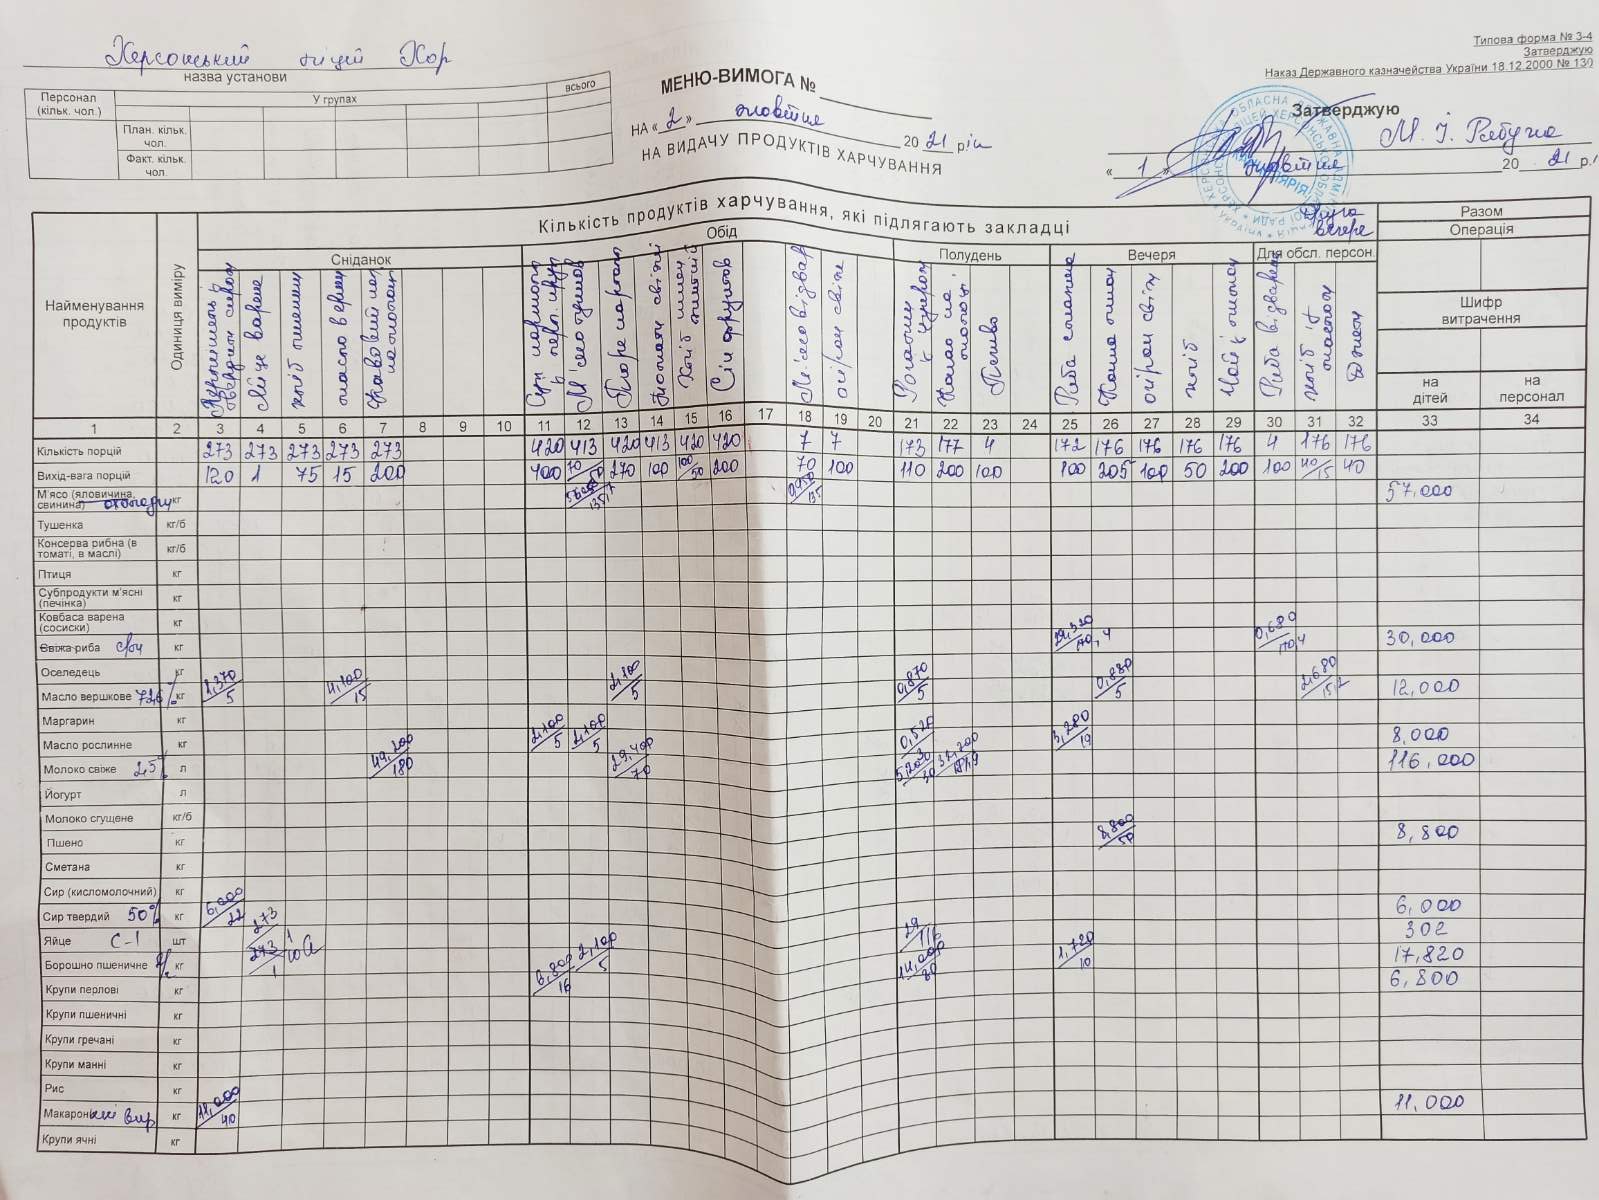 Херсонський ліцей ХОР
назва установи
Типова форма № 3-4
Затверджую
Наказ Державного казначейства України 18.12.2000 № 130
МЕНЮ-ВИМОГА №
НА « 2 » жовтня 2021 рік
НА ВИДАЧУ ПРОДУКТІВ ХАРЧУВАННЯ
Затверджую
М. І. Рябуха
« 1 » жовтня 2021 р.
Персонал (кільк. чол.) У групах всього
План. кільк. чол.
Факт. кільк. чол.
Кількість продуктів харчування, які підлягають закладці
Найменування продуктів
Одиниця виміру
Сніданок Обід Полудень Вечеря Для обсл. персон. Друга вечеря
Разом
Операція
Шифр витрачення
на дітей на персонал
Яйце варене
хліб пшенич
масло верш
Плоре картоп
Сік фруктов
М'ясо відвар
огірок свіж
Печиво
Каша пшон
огірок свіж
хліб
Риба відварена
хліб з маслом
Джем
1 2 3 4 5 6 7 8 9 10 11 12 13 14 15 16 17 18 19 20 21 22 23 24 25 26 27 28 29 30 31 32 33 34
Кількість порцій 273 273 273 273 273 420 413 420 413 420 420 7 7 173 177 4 172 176 176 176 176 4 176 176
Вихід-вага порцій 120 1 75 15 200 400 70/50 270 100 100/50 200 70 100 110 200 100 100 205 100 50 200 100 40/15 40
М'ясо (яловичина, свинина) охолодж кг 57,000
Тушенка кг/б
Консерва рибна (в томаті, в маслі) кг/б
Птиця кг
Субпродукти м'ясні (печінка) кг
Ковбаса варена (сосиски) кг
Свіжа риба с/м кг 29,320/170,4 0,680/170,4 30,000
Оселедець кг
Масло вершкове 72,6% кг 1,370/5 4,100/15 2,100/5 0,870/5 0,880/5 2,680/15,2 12,000
Маргарин кг
Масло рослинне кг 2,100/5 2,100/5 0,520 3,280/19 8,000
Молоко свіже 2,5% л 49,200/180 29,400/70 5,200/30 32,200 116,000
Йогурт л
Молоко сгущене кг/б
Пшено кг 8,800/50 8,800
Сметана кг
Сир (кисломолочний) кг
Сир твердий 50% кг 6,000/22 6,000
Яйце С-1 шт 273/1 29 302
Борошно пшеничне кг 2,100/5 14,000/80 1,720/10 17,820
Крупи перлові кг 6,800/16 6,800
Крупи пшеничні кг
Крупи гречані кг
Крупи манні кг
Рис кг
Макаронні вир кг 11,000/40 11,000
Крупи ячні кг